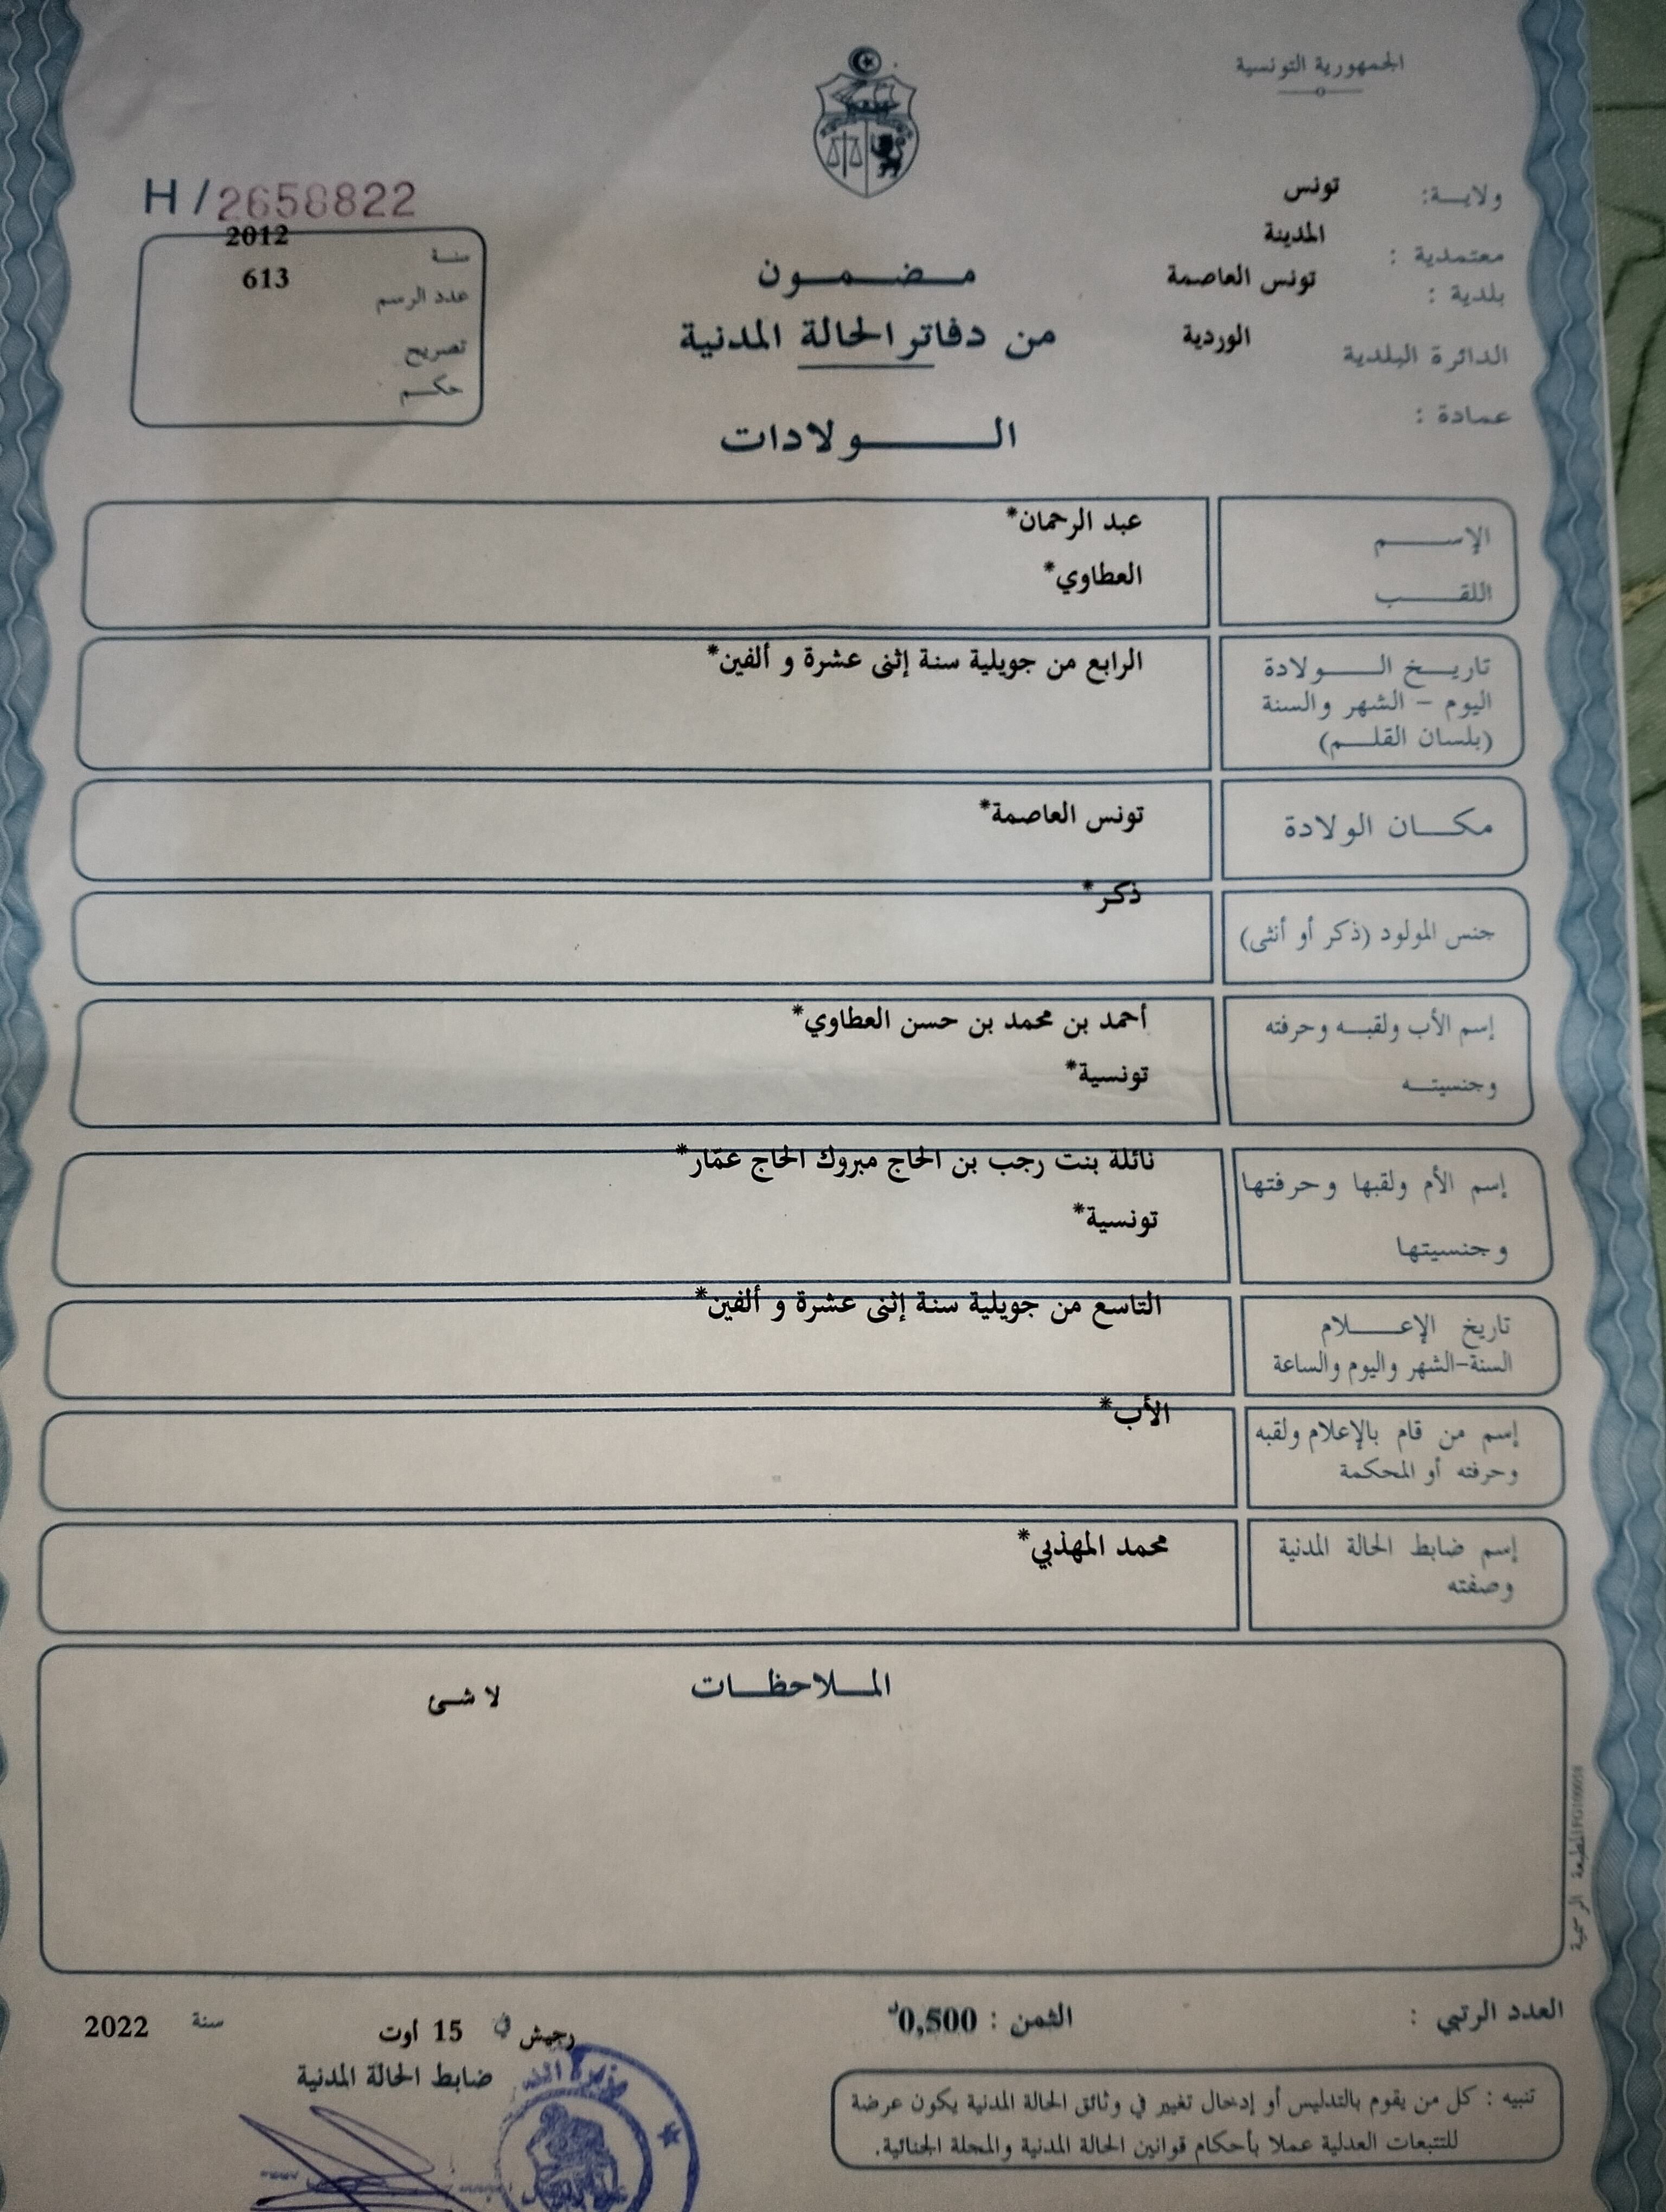 الجمهورية التونسية
ولاية: تونس
معتمدية : المدينة
بلدية : تونس العاصمة
الدائرة البلدية الوردية
عمادة :
H/2658822
سنة 2012
عدد الرسم 613
تصريح
حكم
مضمون
من دفاتر الحالة المدنية
الولادات
الإسم عبد الرحمان*
اللقب العطاوي*
تاريخ الولادة الرابع من جويلية سنة إثنى عشرة و ألفين*
اليوم - الشهر والسنة
(بلسان القلم)
مكان الولادة تونس العاصمة*
جنس المولود (ذكر أو أنثى) ذكر*
إسم الأب ولقبه وحرفته أحمد بن محمد بن حسن العطاوي*
وجنسيته تونسية*
إسم الأم ولقبها وحرفتها نائلة بنت رجب بن الحاج مبروك الحاج عمّار*
وجنسيتها تونسية*
تاريخ الإعلام التاسع من جويلية سنة إثنى عشرة و ألفين*
السنة-الشهر واليوم والساعة
إسم من قام بالإعلام ولقبه الأب*
وحرفته أو المحكمة
إسم ضابط الحالة المدنية محمد المهذبي*
وصفته
الملاحظات
لا شئ
المطبعة الرسمية
العدد الرتبي :
الثمن : 0,500د
رجيش في 15 أوت سنة 2022
ضابط الحالة المدنية
تنبيه : كل من يقوم بالتدليس أو إدخال تغيير في وثائق الحالة المدنية يكون عرضة
للتتبعات العدلية عملا بأحكام قوانين الحالة المدنية والمجلة الجنائية.